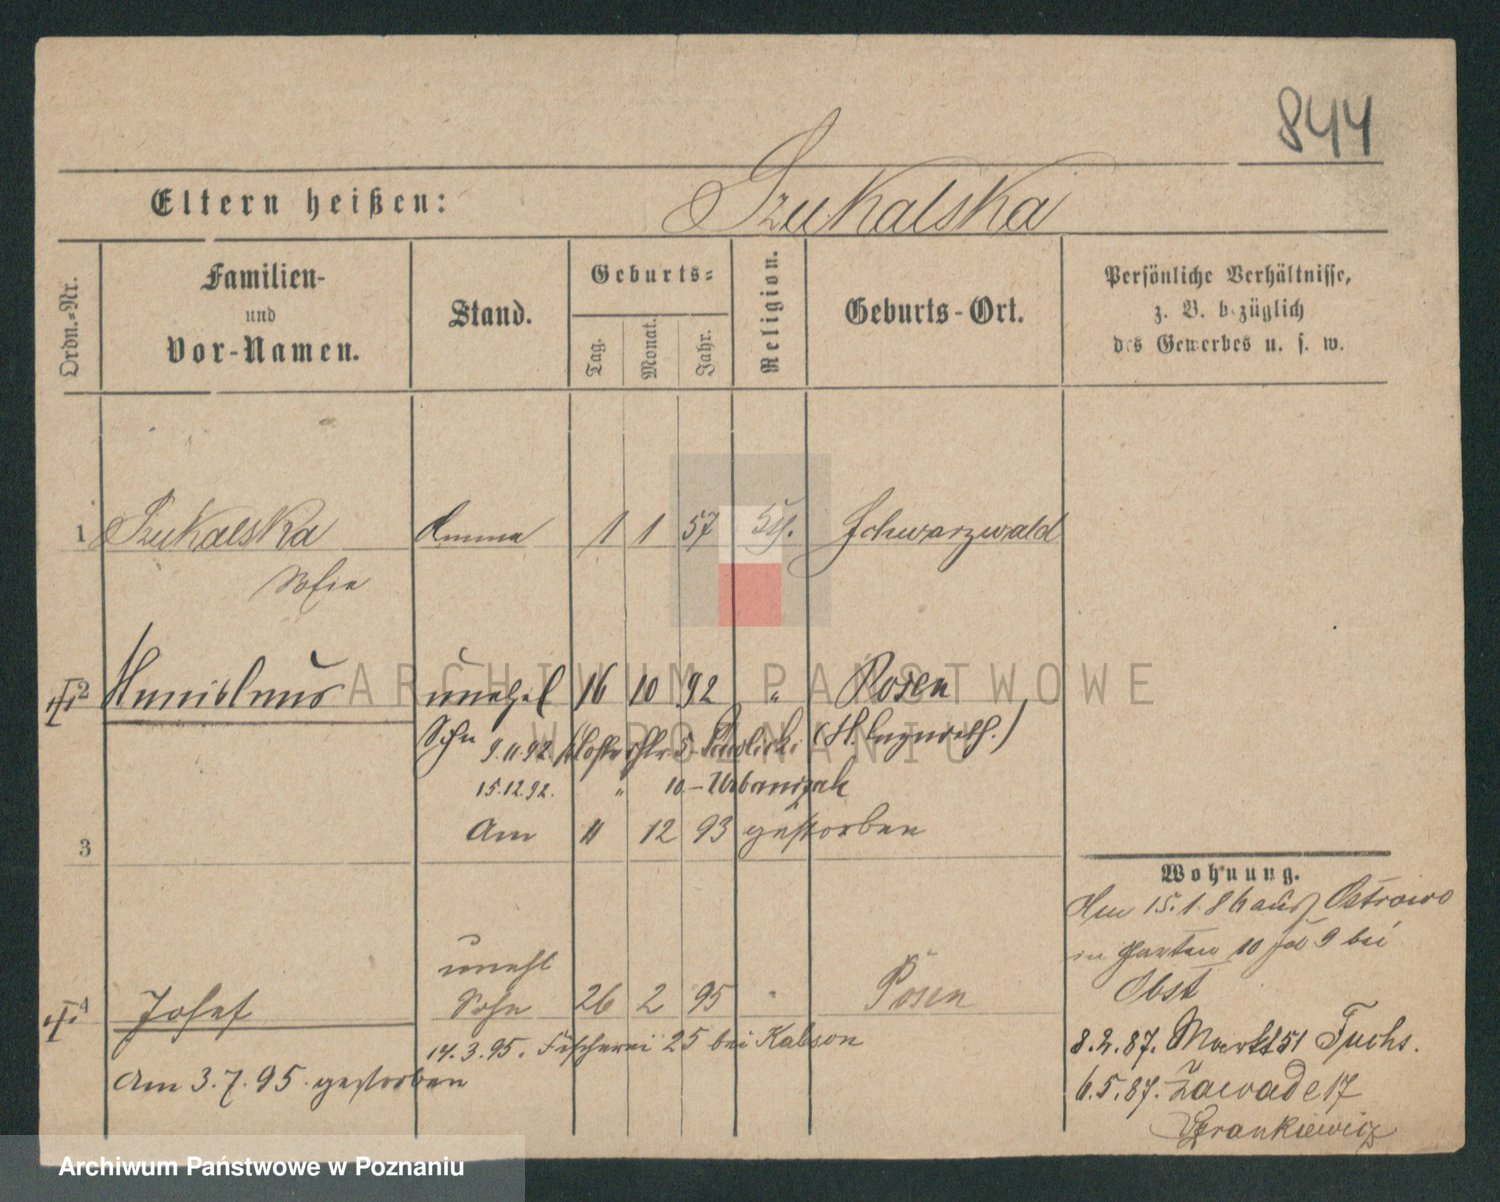 844
Eltern heißen: Szukalska
Ordn.-Nr.
Familien-
und
Vor-Namen.
Stand.
Geburts-
Tag. Monat. Jahr.
Religion.
Geburts-Ort.
Persönliche Verhältnisse,
z. B. bezüglich
des Gewerbes u. s. w.
1 Szukalska Amme 1 1 57 kth. Schwarzwald
Sofie
2 unehel 16 10 92 " Posen
Sohn 9.11.92. Klosterstr. 5 - Pawlicki
15.12.92. " 10 - Urbanizak
Am 11 12 93 gestorben
3
4 Josef unehl Sohn 26 2 95 " Posen
14.3.95. Fischerei 25 bei Kabson
Am 3.7.95 gestorben
Wohnung.
15.1.86 aus Ostrowo
in Garten 10 9 bei
Obst
8.2.87. Markt 51 Fuchs.
6.5.87. Zawade 17
Frankiewicz
ARCHIWUM PAŃSTWOWE
W POZNANIU
Archiwum Państwowe w Poznaniu